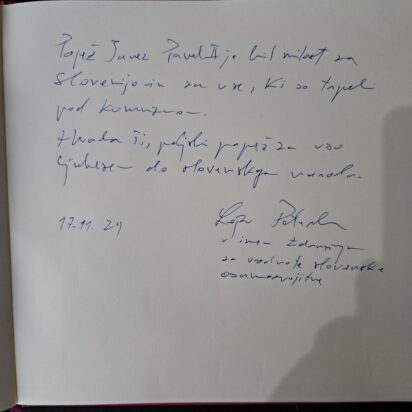 Papež Janez Pavel II je bil milost za
Slovenijo in za vse, ki so trpeli
pod komunizmom.
Hvala Ti, poljski papež za vso
ljubezen do slovenskega naroda.
17.11.24
v imenu Združenja
za vrednote slovenske
osamosvojitve